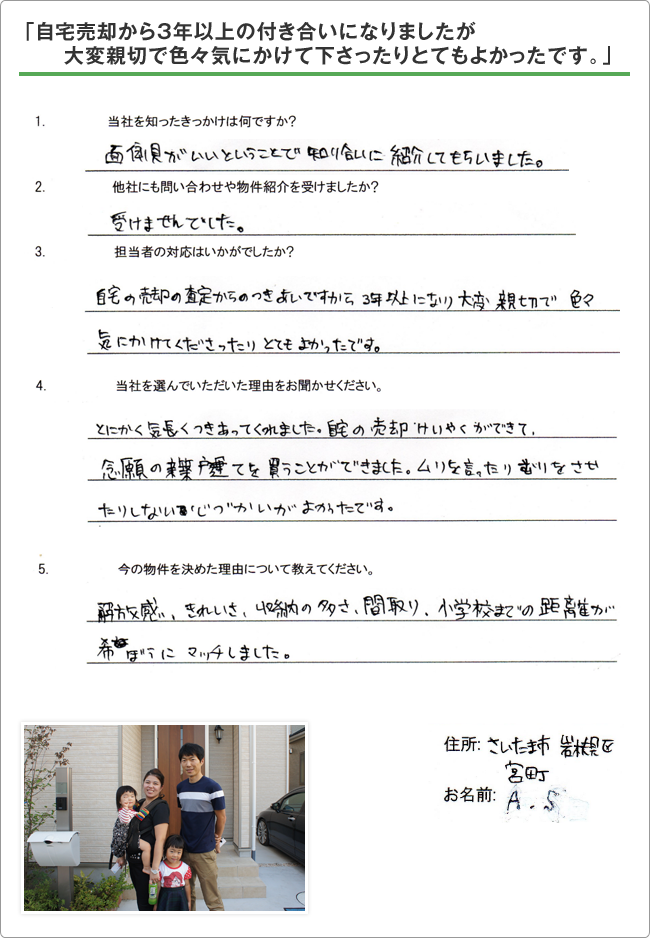 「自宅売却から3年以上の付き合いになりましたが
大変親切で色々気にかけて下さったりとてもよかったです。」
1. 当社を知ったきっかけは何ですか?
面倒見がいいということで 知り合いに 紹介してもらいました。
2. 他社にも問い合わせや物件紹介を受けましたか?
受けませんでした。
3. 担当者の対応はいかがでしたか?
自宅の売却の査定からのつきあいですから 3年以上になり 大変 親切で 色々
気にかけてくださったり とても よかったです。
4. 当社を選んでいただいた理由をお聞かせください。
とにかく 気長く つきあってくれました。自宅の 売却 けいやく ができて、
念願の 戸建てを 買うことができました。ムリを言ったり むりを させ
たりしない がよかったです。
5. 今の物件を決めた理由について教えてください。
解放感、きれいさ、収納の多さ、間取り、小学校までの 距離が
希ぼうに マッチしました。
住所: さいたま市 岩槻区
宮町
お名前: A.S